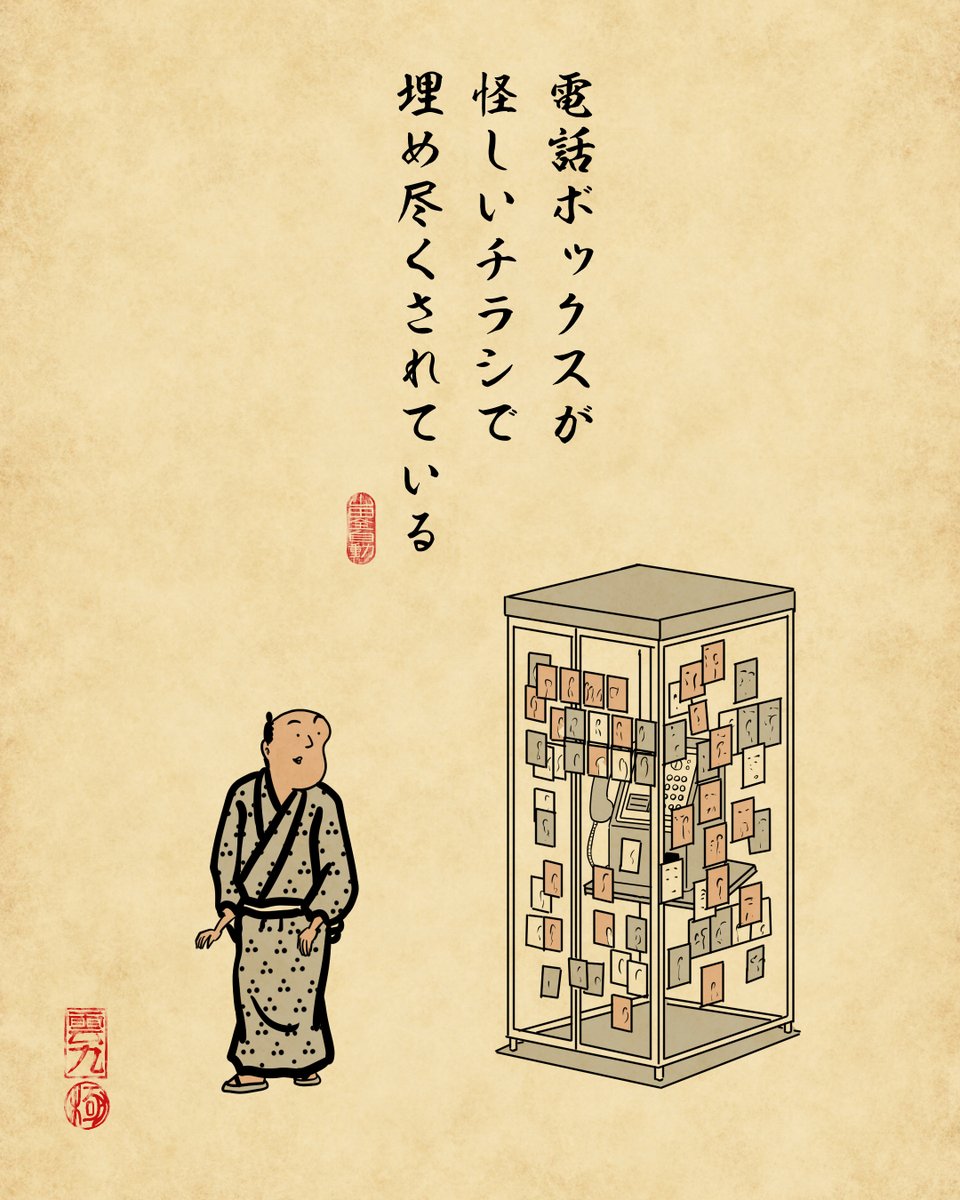 電話ボックスが
怪しいチラシで
埋め尽くされている